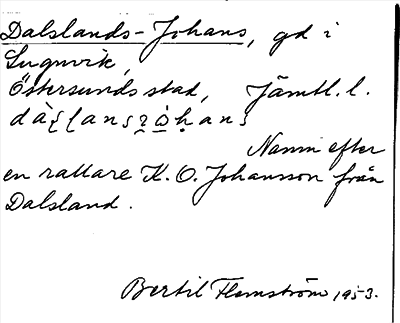 Dalslands-Johans, gd i
Lugnvik,
Östersunds stad, Jämtl. l.
Namn efter
en rallare K. O. Johansson från
Dalsland.
Bertil Flemström 1953.